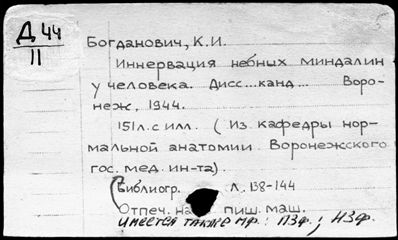 Д 44
11
Богданович, К.И.
Иннервация небных миндалин
у человека. Дисс...канд... Воро-
неж, 1944.
151л. с илл. (Из кафедры нор-
мальной анатомии Воронежского
гос. мед. ин-та).
Библиогр. Л. 138-144
Отпеч. на пиш. маш.
имеется также мф.: ПЗф.; НЗф.